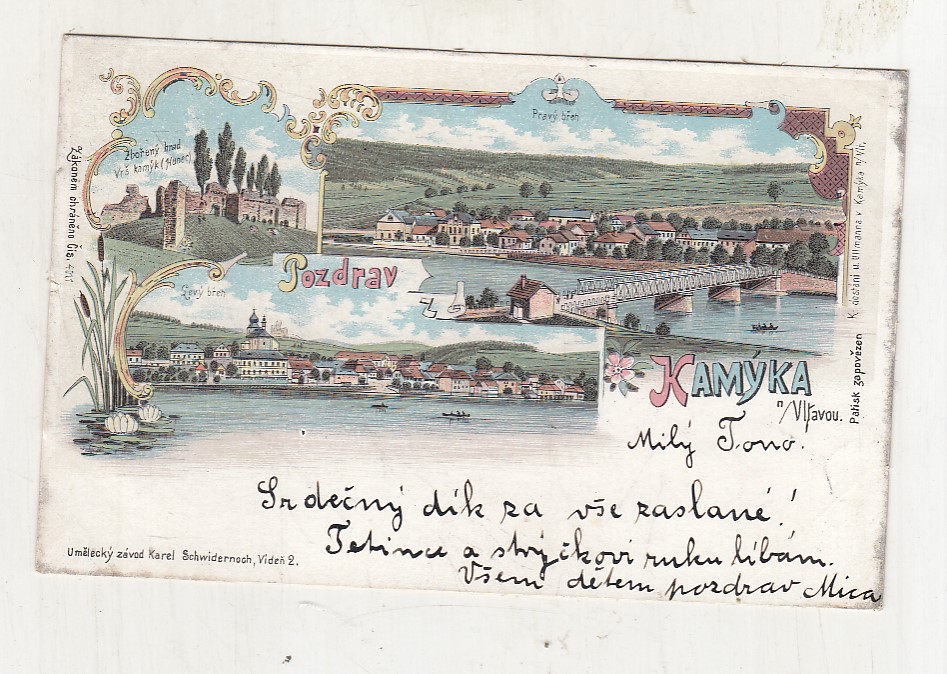 Pravý břeh
Zbořený hrad
Vrš kamýk (Hunec)
Zákonem chráněno Čís.
Pozdrav
Levý břeh
z
Kamýka
n/Vltavou.
K dostání u Ullmanna v Kamýka n/Vlt.
Patisk zapovězen
Milý Tono.
Srdečný dík za vše zaslané!
Tetince a strýčkovi ruku líbám.
Všem dětem pozdrav Mica
Umělecký závod Karel Schwidernoch, Vídeň 2.